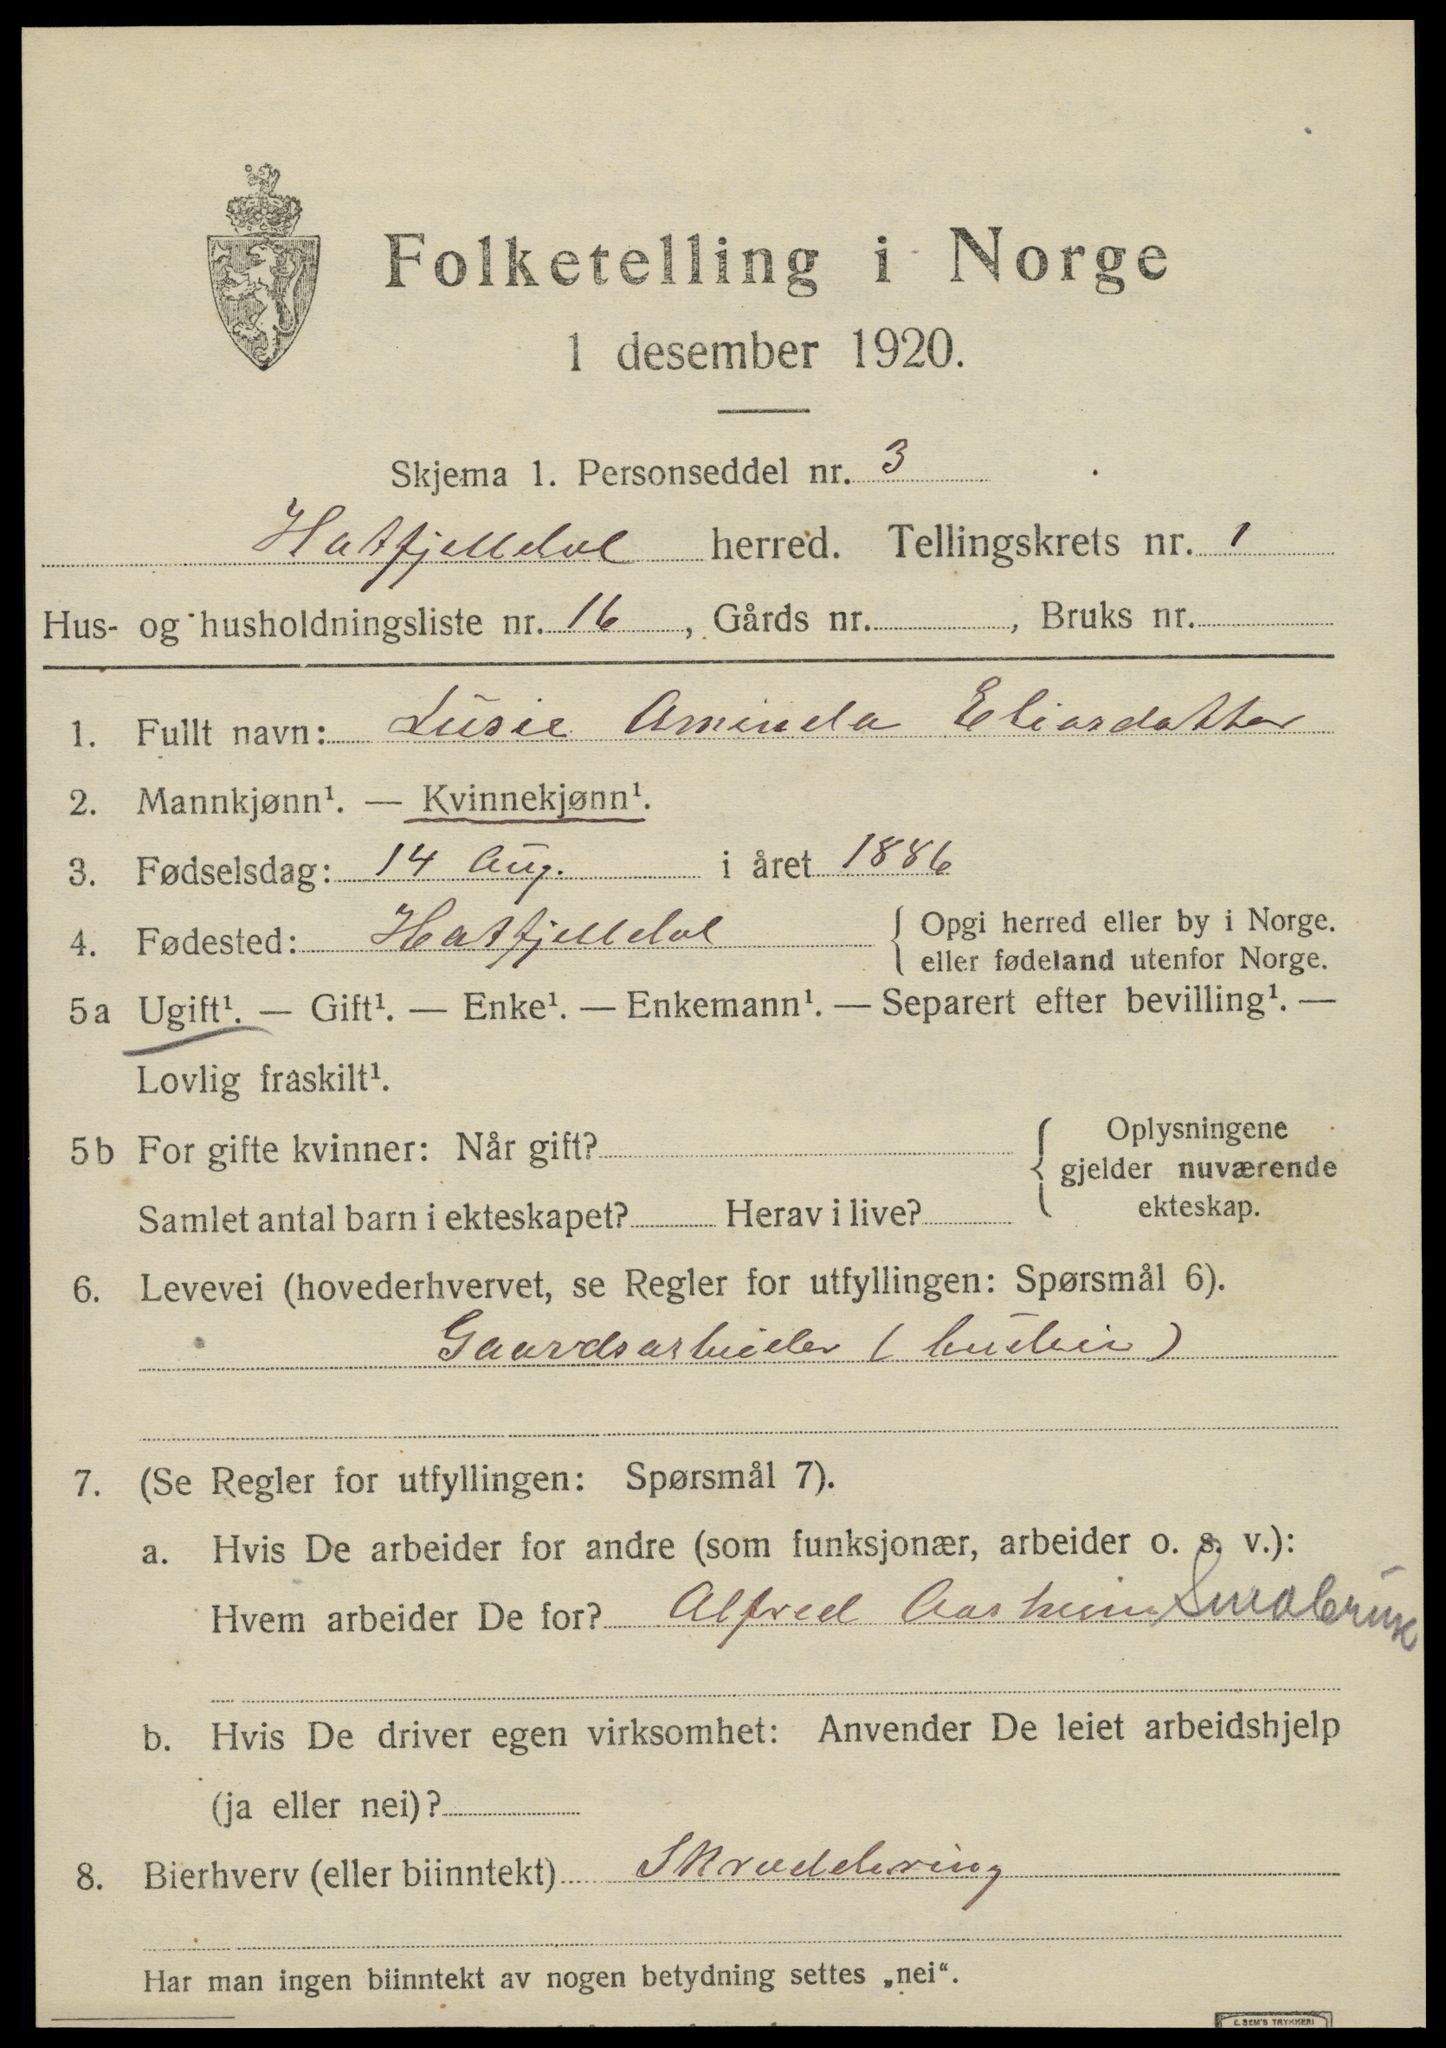 Folketelling i Norge
1 desember 1920.
Skjema 1. Personseddel nr. 3
Hatfjelldal herred. Tellingskrets nr. 1
Hus- og husholdningsliste nr. 16, Gårds nr. , Bruks nr.
1. Fullt navn: Lusie Aminda Eliasdatter
2. Mannkjønn¹. — Kvinnekjønn¹.
3. Fødselsdag: 14 Aug. i året 1886
4. Fødested: Hatfjelldal { Opgi herred eller by i Norge.
eller fødeland utenfor Norge.
5a Ugift¹. — Gift¹. — Enke¹. — Enkemann¹. — Separert efter bevilling¹. —
Lovlig fraskilt¹.
5b For gifte kvinner: Når gift? { Oplysningene
gjelder nuværende
Samlet antal barn i ekteskapet? Herav i live? ekteskap.
6. Levevei (hovederhvervet, se Regler for utfyllingen: Spørsmål 6).
Gaardsarbeider (budeie)
7. (Se Regler for utfyllingen: Spørsmål 7).
a. Hvis De arbeider for andre (som funksjonær, arbeider o. s. v.):
Hvem arbeider De for? Alfred Aasheim Småbruk
b. Hvis De driver egen virksomhet: Anvender De leiet arbeidshjelp
(ja eller nei)?
8. Bierhverv (eller biinntekt) Skreddering
Har man ingen biinntekt av nogen betydning settes „nei“.
E. SEM'S TRYKKERI